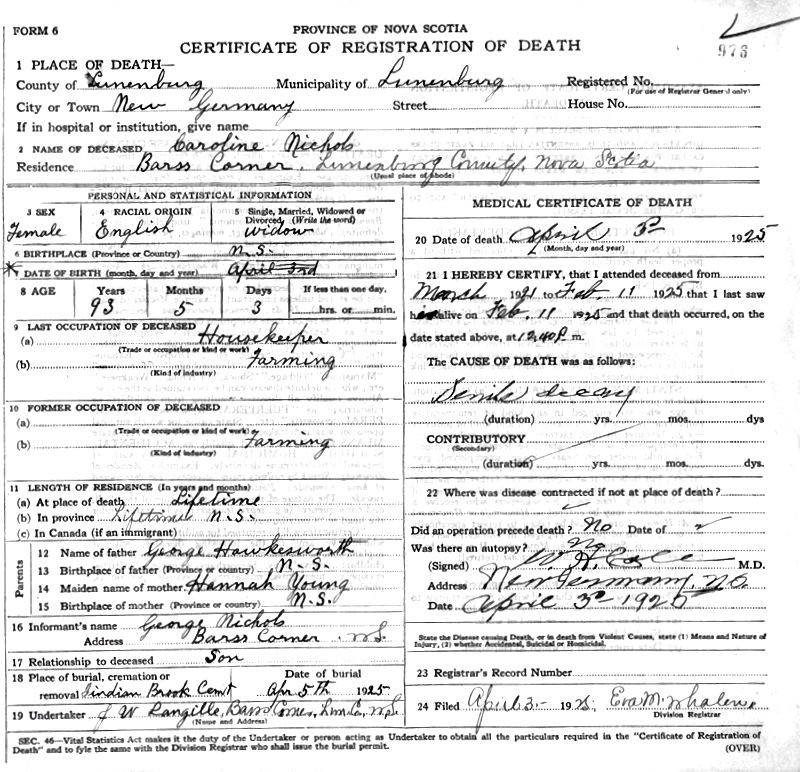 FORM 6
PROVINCE OF NOVA SCOTIA
CERTIFICATE OF REGISTRATION OF DEATH
976
1 PLACE OF DEATH—
County of Lunenburg Municipality of Lunenburg Registered No.
(For use of Registrar General only)
City or Town New Germany Street House No.
If in hospital or institution, give name
2 NAME OF DECEASED Caroline Nichols
Residence Barss Corner, Lunenburg County, Nova Scotia
(Usual place of abode)
PERSONAL AND STATISTICAL INFORMATION
3 SEX 4 RACIAL ORIGIN 5 Single, Married, Widowed or Divorced (Write the word)
Female English Widow
6 BIRTHPLACE (Province or Country) N.S.
7 DATE OF BIRTH (month, day and year) April 3rd
8 AGE Years Months Days If less than one day,
93 5 3 hrs. or min.
9 LAST OCCUPATION OF DECEASED
(a) Housekeeper
(Trade or occupation or kind of work)
(b) Farming
(Kind of industry)
10 FORMER OCCUPATION OF DECEASED
(a)
(Trade or occupation or kind of work)
(b) Farming
(Kind of industry)
11 LENGTH OF RESIDENCE (In years and months)
(a) At place of death Lifetime
(b) In province Lifetime N.S.
(c) In Canada (if an immigrant)
Parents
12 Name of father George Hawkesworth
13 Birthplace of father (Province or country) N.S.
14 Maiden name of mother Hannah Young
15 Birthplace of mother (Province or country) N.S.
16 Informant's name George Nichols
Address Barss Corner N.S.
17 Relationship to deceased Son
18 Place of burial, cremation or Date of burial
removal Indian Brook Cemt Apr 5th 1925
19 Undertaker J W Langille, Barss Corner, Lun. Co, N.S.
(Name and Address)
MEDICAL CERTIFICATE OF DEATH
20 Date of death April 3rd 1925
(Month, day and year)
21 I HEREBY CERTIFY, that I attended deceased from
March 1921 to Feb. 11 1925 that I last saw
h alive on Feb. 11 1925 and that death occurred, on the
date stated above, at 12.40 P. m.
The CAUSE OF DEATH was as follows:
Senile decay
(duration) yrs. mos. dys
CONTRIBUTORY
(Secondary)
(duration) yrs. mos. dys.
22 Where was disease contracted if not at place of death?
Did an operation precede death? No Date of
Was there an autopsy? No
(Signed) W. H. Cole M.D.
Address New Germany, N.S.
Date April 3rd 1925
State the Disease causing Death, or in death from Violent Causes, state (1) Means and Nature of
Injury, (2) whether Accidental, Suicidal or Homicidal.
23 Registrar's Record Number
24 Filed April 3 - 1925 Eva M. Whalen
Division Registrar
SEC. 46—Vital Statistics Act makes it the duty of the Undertaker or person acting as Undertaker to obtain all the particulars required in the "Certificate of Registration of
Death" and to fyle the same with the Division Registrar who shall issue the burial permit. (OVER)